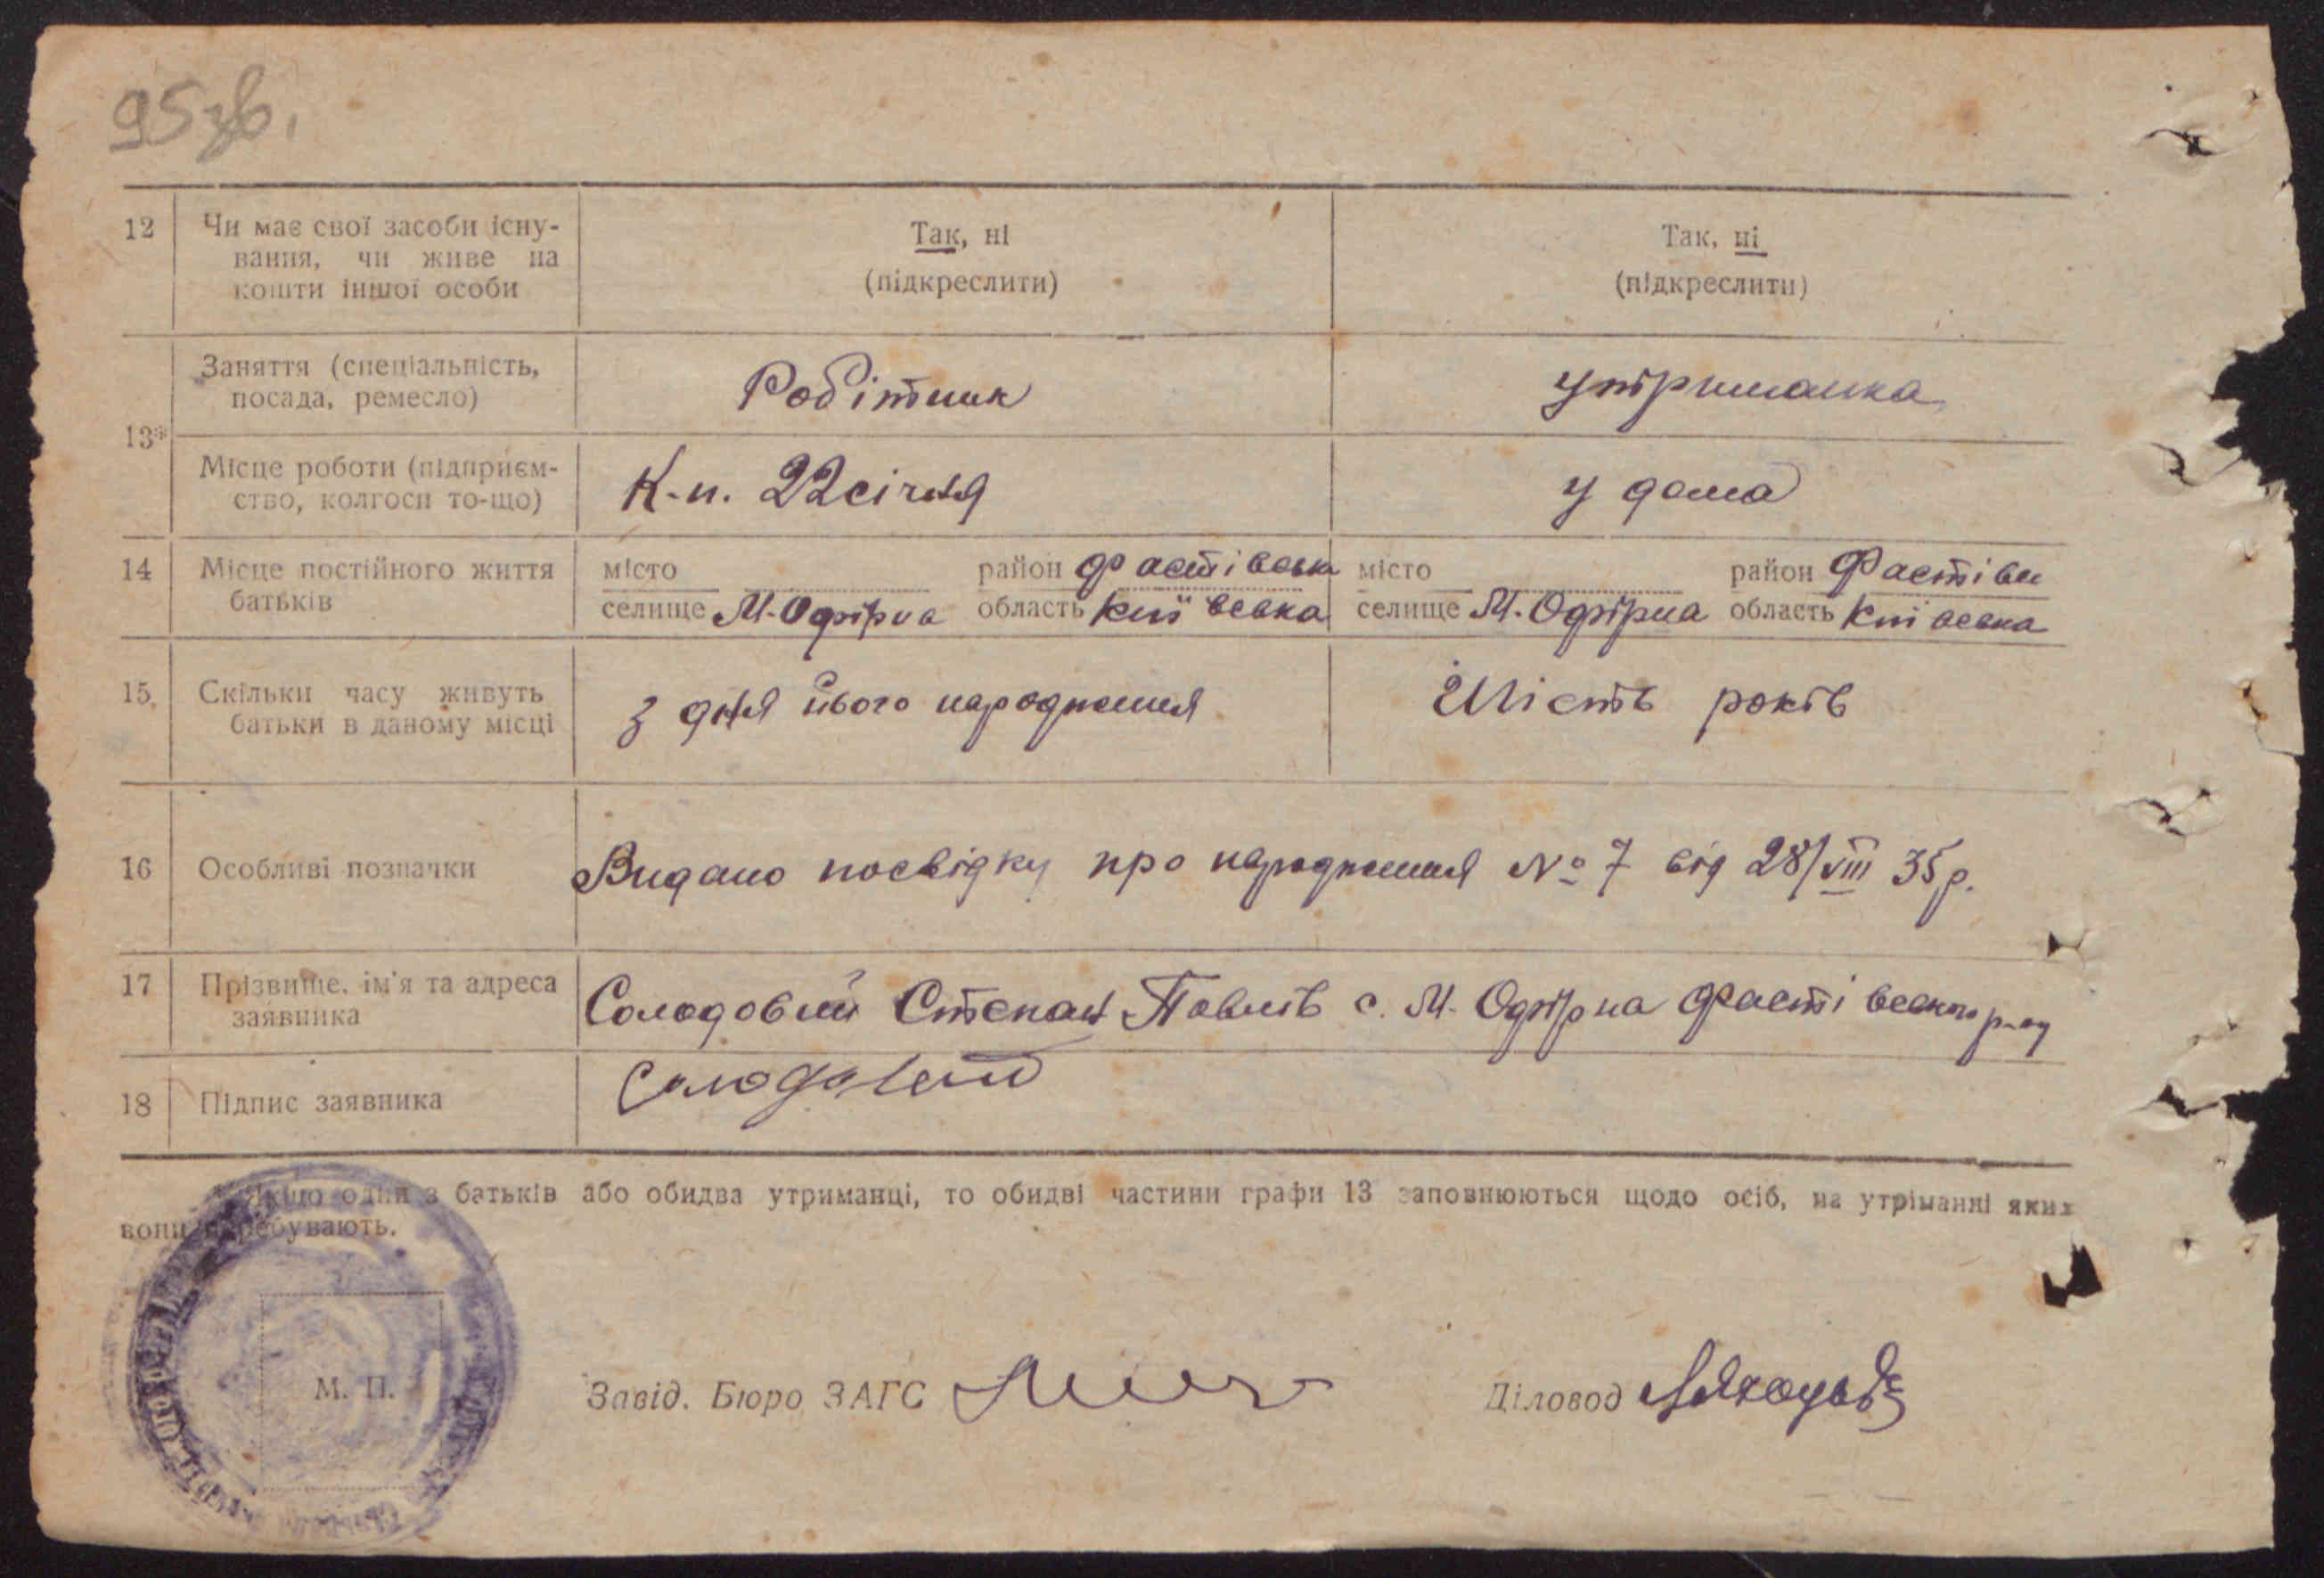 95зв.
12 Чи має свої засоби існу- Так, ні Так, ні
вання, чи живе на
кошти іншої особи (підкреслити) (підкреслити)
13* Заняття (спеціальність, Робітник утриманка
посада, ремесло)
Місце роботи (підприєм- К-п. 22 січня у дома
ство, колгосп то-що)
14 Місце постійного життя місто район Фастівськ місто район Фастівс
батьків селище М-Офірна область Київська селище М. Офірна область Київська
15. Скільки часу живуть з дня його народження Шість років
батьки в даному місці
16 Особливі позначки Видано посвідку про народження № 7 від 28/VIII 35 р.
17 Прізвище, ім'я та адреса Солодовий Степан Павлів с. М. Офірна Фастівського р-ну
заявника
18 Підпис заявника
* Якщо один з батьків або обидва утриманці, то обидві частини графи 13 заповнюються щодо осіб, на утріманні яких
вони перебувають.
М. П.
Завід. Бюро ЗАГС Діловод